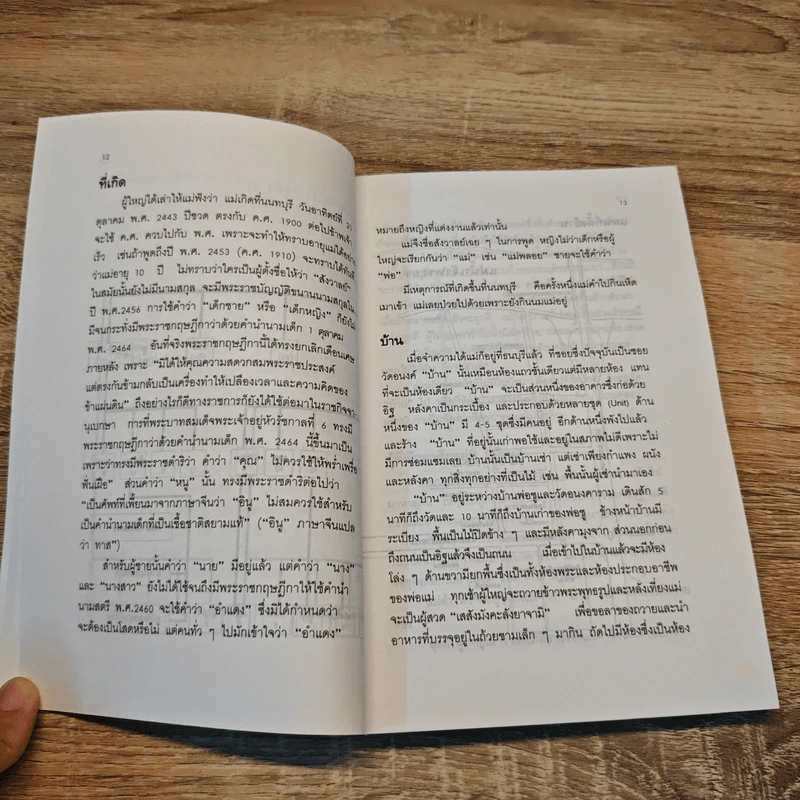 12
ที่เกิด
ผู้ใหญ่ได้เล่าให้แม่ฟังว่า แม่เกิดที่นนทบุรี วันอาทิตย์ที่ 21
ตุลาคม พ.ศ. 2443 ปีชวด ตรงกับ ค.ศ. 1900 ต่อไปข้าพเจ้า
จะใช้ ค.ศ. ควบไปกับ พ.ศ. เพราะจะทำให้ทราบอายุแม่ได้อย่าง
เร็ว เช่นถ้าพูดถึงปี พ.ศ. 2453 (ค.ศ. 1910) จะทราบได้ทันที
ว่าแม่อายุ 10 ปี ไม่ทราบว่าใครเป็นผู้ตั้งชื่อให้ว่า "สังวาลย์"
ในสมัยนั้นยังไม่มีนามสกุล จะมีพระราชบัญญัติขนานนามสกุลใน
ปี พ.ศ.2456 การใช้คำว่า "เด็กชาย" หรือ "เด็กหญิง" ก็ยังไม่
มีจนกระทั่งมีพระราชกฤษฎีกาว่าด้วยคำนำนามเด็ก 1 ตุลาคม
พ.ศ. 2464 อันที่จริงพระราชกฤษฎีกานี้ได้ทรงยกเลิกเดือนเศษ
ภายหลัง เพราะ "มิได้ให้คุณความสดวกสมพระราชประสงค์
แต่ตรงกันข้ามกลับเป็นเครื่องทำให้เปลืองเวลาและความคิดของ
ข้าแผ่นดิน" ถึงอย่างไรก็ดีทางราชการก็ยังได้ใช้ต่อมาในราชกิจจา-
นุเบกษา การที่พระบาทสมเด็จพระเจ้าอยู่หัวรัชกาลที่ 6 ทรงมี
พระราชกฤษฎีกาว่าด้วยคำนำนามเด็ก พ.ศ. 2464 นี้ขึ้นมาเป็น
เพราะว่าทรงมีพระราชดำริว่า คำว่า "คุณ" ไม่ควรใช้ให้พร่ำเพรื่อ
ฟั่นเฝือ" ส่วนคำว่า "หนู" นั้น ทรงมีพระราชดำริต่อไปว่า
"เป็นศัพท์ที่เพี้ยนมาจากภาษาจีนว่า "อินู" ไม่สมควรใช้สำหรับ
เป็นคำนำนามเด็กที่เป็นเชื้อชาติสยามแท้" ("อินู" ภาษาจีนแปล
ว่า ทาส")
สำหรับผู้ชายนั้นคำว่า "นาย" มีอยู่แล้ว แต่คำว่า "นาง"
และ "นางสาว" ยังไม่ได้ใช้จนถึงมีพระราชกฤษฎีกาให้ใช้คำนำ
นามสตรี พ.ศ.2460 จะใช้คำว่า "อำแดง" ซึ่งมิได้กำหนดว่า
จะต้องเป็นโสดหรือไม่ แต่คนทั่ว ๆ ไปมักเข้าใจว่า "อำแดง"
13
หมายถึงหญิงที่แต่งงานแล้วเท่านั้น
แม่จึงชื่อสังวาลย์เฉย ๆ ในการพูด หญิงไม่ว่าเด็กหรือผู้
ใหญ่จะเรียกกันว่า "แม่" เช่น "แม่พลอย" ชายจะใช้คำว่า
"พ่อ"
มีเหตุการณ์ที่เกิดขึ้นที่นนทบุรี คือครั้งหนึ่งแม่คำไปกินเห็ด
เมาเข้า แม่เลยป่วยไปด้วยเพราะยังกินนมแม่อยู่
บ้าน
เมื่อจำความได้แม่ก็อยู่ที่ธนบุรีแล้ว ที่ซอยซึ่งปัจจุบันเป็นซอย
วัดอนงค์ "บ้าน" นั้นเหมือนห้องแถวชั้นเดียวแต่มีหลายห้อง แทน
ที่จะเป็นห้องเดียว "บ้าน" จะเป็นส่วนหนึ่งของอาคารซึ่งก่อด้วย
อิฐ หลังคาเป็นกระเบื้อง และประกอบด้วยหลายชุด (Unit) ด้าน
หนึ่งของ "บ้าน" มี 4-5 ชุดซึ่งมีคนอยู่ อีกด้านหนึ่งพังไปแล้ว
และร้าง "บ้าน" ที่อยู่นั้นเก่าพอใช้และอยู่ในสภาพไม่ดีเพราะไม่
มีการซ่อมแซมเลย บ้านนั้นเป็นบ้านเช่า แต่เช่าเพียงกำแพง ผนัง
และหลังคา ทุกสิ่งทุกอย่างที่เป็นไม้ เช่น พื้นนั้นผู้เช่านำมาเอง
"บ้าน" อยู่ระหว่างบ้านพ่อชูและวัดอนงคาราม เดินสัก 5
นาทีก็ถึงวัดและ 10 นาทีก็ถึงบ้านเก่าของพ่อชู ข้างหน้าบ้านมี
ระเบียง พื้นเป็นไม้ปิดข้าง ๆ และมีหลังคามุงจาก ส่วนนอกก่อน
ถึงถนนเป็นอิฐแล้วจึงเป็นถนน เมื่อเข้าไปในบ้านแล้วจะมีห้อง
โล่ง ๆ ด้านขวามียกพื้นซึ่งเป็นทั้งห้องพระและห้องประกอบอาชีพ
ของพ่อแม่ ทุกเช้าผู้ใหญ่จะถวายข้าวพระพุทธรูปและหลังเที่ยงแม่
จะเป็นผู้สวด "เสสังมังคะลังยาจามิ" เพื่อขอลาของถวายและนำ
อาหารที่บรรจุอยู่ในถ้วยชามเล็ก ๆ มากิน ถัดไปมีห้องซึ่งเป็นห้อง